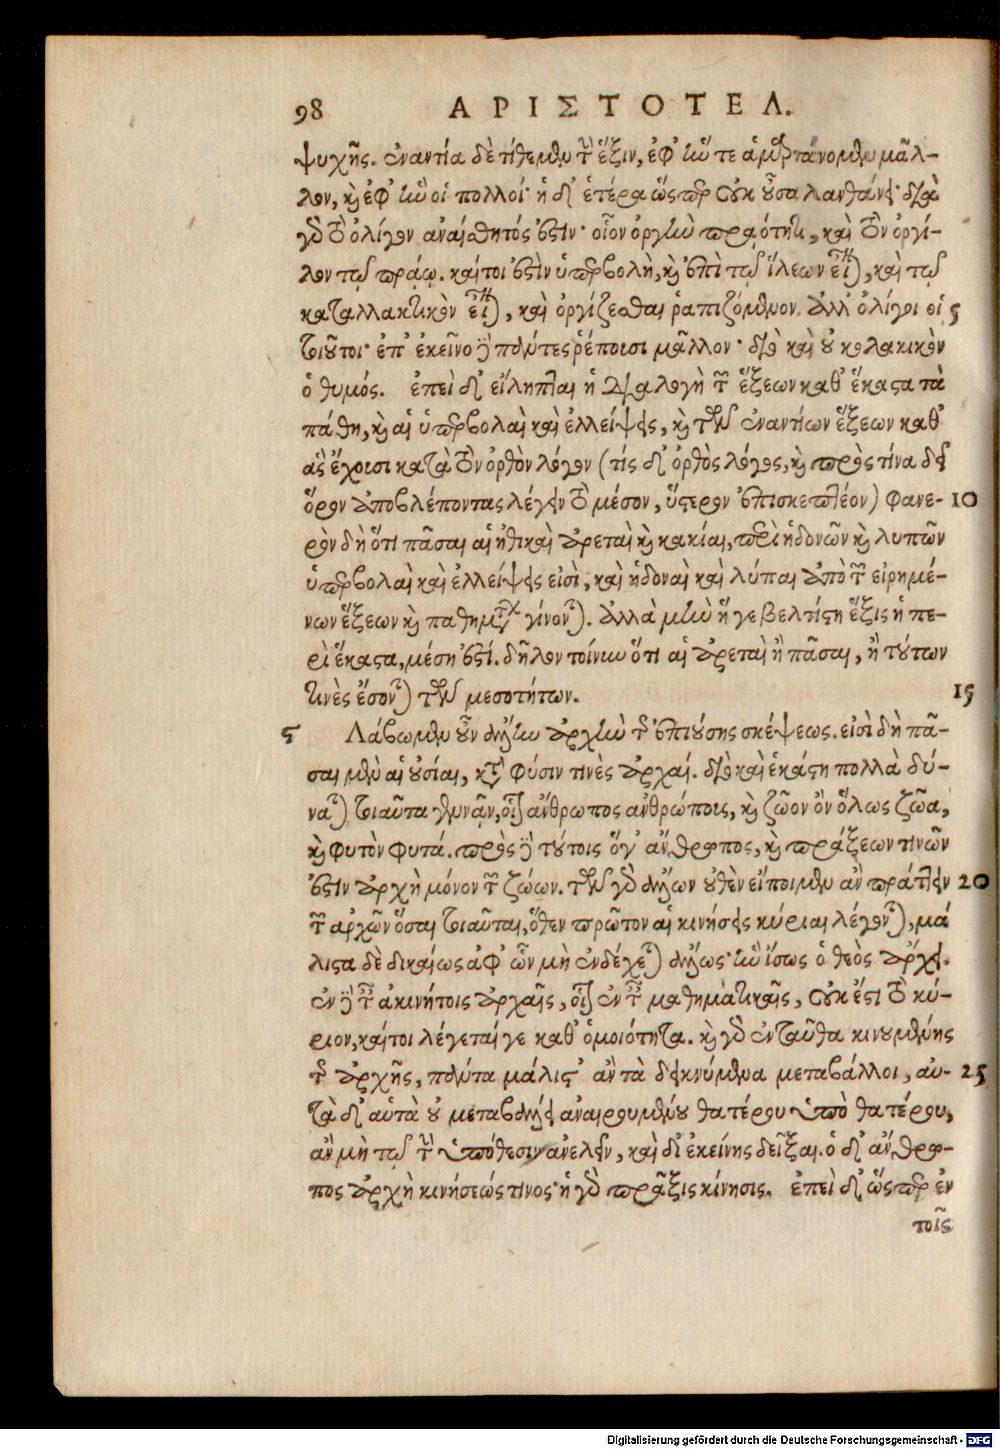 98 ΑΡΙΣΤΟΤΕΛ.
ψυχῆς. ἐναντία δὲ τίθεμεν τὴν ἕξιν, ἐφ' ἥν τε ἁμαρτάνομεν μᾶλ-
λον, καὶ ἐφ' ἣν οἱ πολλοί· ἡ δ' ἑτέρα ὥσπερ οὐκ οὖσα λανθάνει· διὰ
γὰρ τὸ ὀλίγον ἀναίσθητός ἐστιν· οἷον ὀργὴν πραότητι, καὶ τὸν ὀργί-
λον τῷ πράῳ. καίτοι ἐστὶν ὑπερβολὴ, καὶ ἐπὶ τῷ ἵλεων εἶναι, καὶ τῷ
καταλλακτικὸν εἶναι, καὶ ὀργίζεσθαι ῥαπιζόμενον. ἀλλ' ὀλίγοι οἱ 5
τοιοῦτοι· ἐπ' ἐκεῖνο δὲ πάντες ῥέπουσι μᾶλλον· διὸ καὶ οὐ κολακικὸν
ὁ θυμός. ἐπεὶ δ' εἴληπται ἡ διαλογὴ τῶν ἕξεων καθ' ἕκαστα τὰ
πάθη, καὶ αἱ ὑπερβολαὶ καὶ ἐλλείψεις, καὶ τῶν ἐναντίων ἕξεων καθ'
ἃς ἔχουσι κατὰ τὸν ὀρθὸν λόγον (τίς δ' ὀρθὸς λόγος, καὶ πρὸς τίνα δεῖ
ὅρον ἀποβλέποντας λέγειν τὸ μέσον, ὕστερον ἐπισκεπτέον) φανε- 10
ρὸν δὴ ὅτι πᾶσαι αἱ ἠθικαὶ ἀρεταὶ καὶ κακίαι, περὶ ἡδονῶν καὶ λυπῶν
ὑπερβολαὶ καὶ ἐλλείψεις εἰσὶ, καὶ ἡδοναὶ καὶ λύπαι ἀπὸ τῶν εἰρημέ-
νων ἕξεων καὶ παθημάτων γίνονται. ἀλλὰ μὴν ἥ γε βελτίστη ἕξις ἡ πε-
ρὶ ἕκαστα, μέση ἐστί. δῆλον τοίνυν ὅτι αἱ ἀρεταὶ ἢ πᾶσαι, ἢ τούτων
τινὲς ἔσονται τῶν μεσοτήτων. 15
ς Λάβωμεν οὖν ἄλλην ἀρχὴν τῆς ἐπιούσης σκέψεως. εἰσὶ δὴ πᾶ-
σαι μὲν αἱ οὐσίαι, κατὰ φύσιν τινὲς ἀρχαί. διὸ καὶ ἑκάστη πολλὰ δύ-
ναται τοιαῦτα γεννᾶν, οἷον ἄνθρωπος ἀνθρώποις, καὶ ζῶον ὂν ὅλως ζῶα,
καὶ φυτὸν φυτά. πρὸς δὲ τούτοις ὅγ' ἄνθρωπος, καὶ πράξεων τινῶν
ἐστιν ἀρχὴ μόνον τῶν ζώων. τῶν γὰρ ἄλλων οὐθὲν εἴποιμεν ἂν πράττειν 20
τῶν ἀρχῶν ὅσαι τοιαῦται, ὅθεν πρῶτον αἱ κινήσεις κύριαι λέγονται, μά
λιστα δὲ δικαίως ἀφ' ὧν μὴ ἐνδέχεται ἄλλως· ἣν ἴσως ὁ θεὸς ἄρχει.
ἐν δὲ ταῖς ἀκινήτοις ἀρχαῖς, οἷον ἐν ταῖς μαθηματικαῖς, οὐκ ἔστι τὸ κύ-
ριον, καίτοι λέγεταί γε καθ' ὁμοιότητα. καὶ γὰρ ἐνταῦθα κινουμένης
τῆς ἀρχῆς, πάντα μάλιστ' ἂν τὰ δεικνύμενα μεταβάλλοι, αὐ- 25
τὰ δ' αὑτὰ οὐ μεταβάλλει ἀναιρουμένου θατέρου ὑπὸ θατέρου,
ἂν μὴ τῷ τὴν ὑπόθεσιν ἀνελεῖν, καὶ δι' ἐκείνης δεῖξαι. ὁ δ' ἄνθρω-
πος ἀρχὴ κινήσεώς τινος· ἡ γὰρ πρᾶξις κίνησις. ἐπεὶ δ' ὥσπερ ἐν
τοῖς
Digitalisierung gefördert durch die Deutsche Forschungsgemeinschaft - DFG